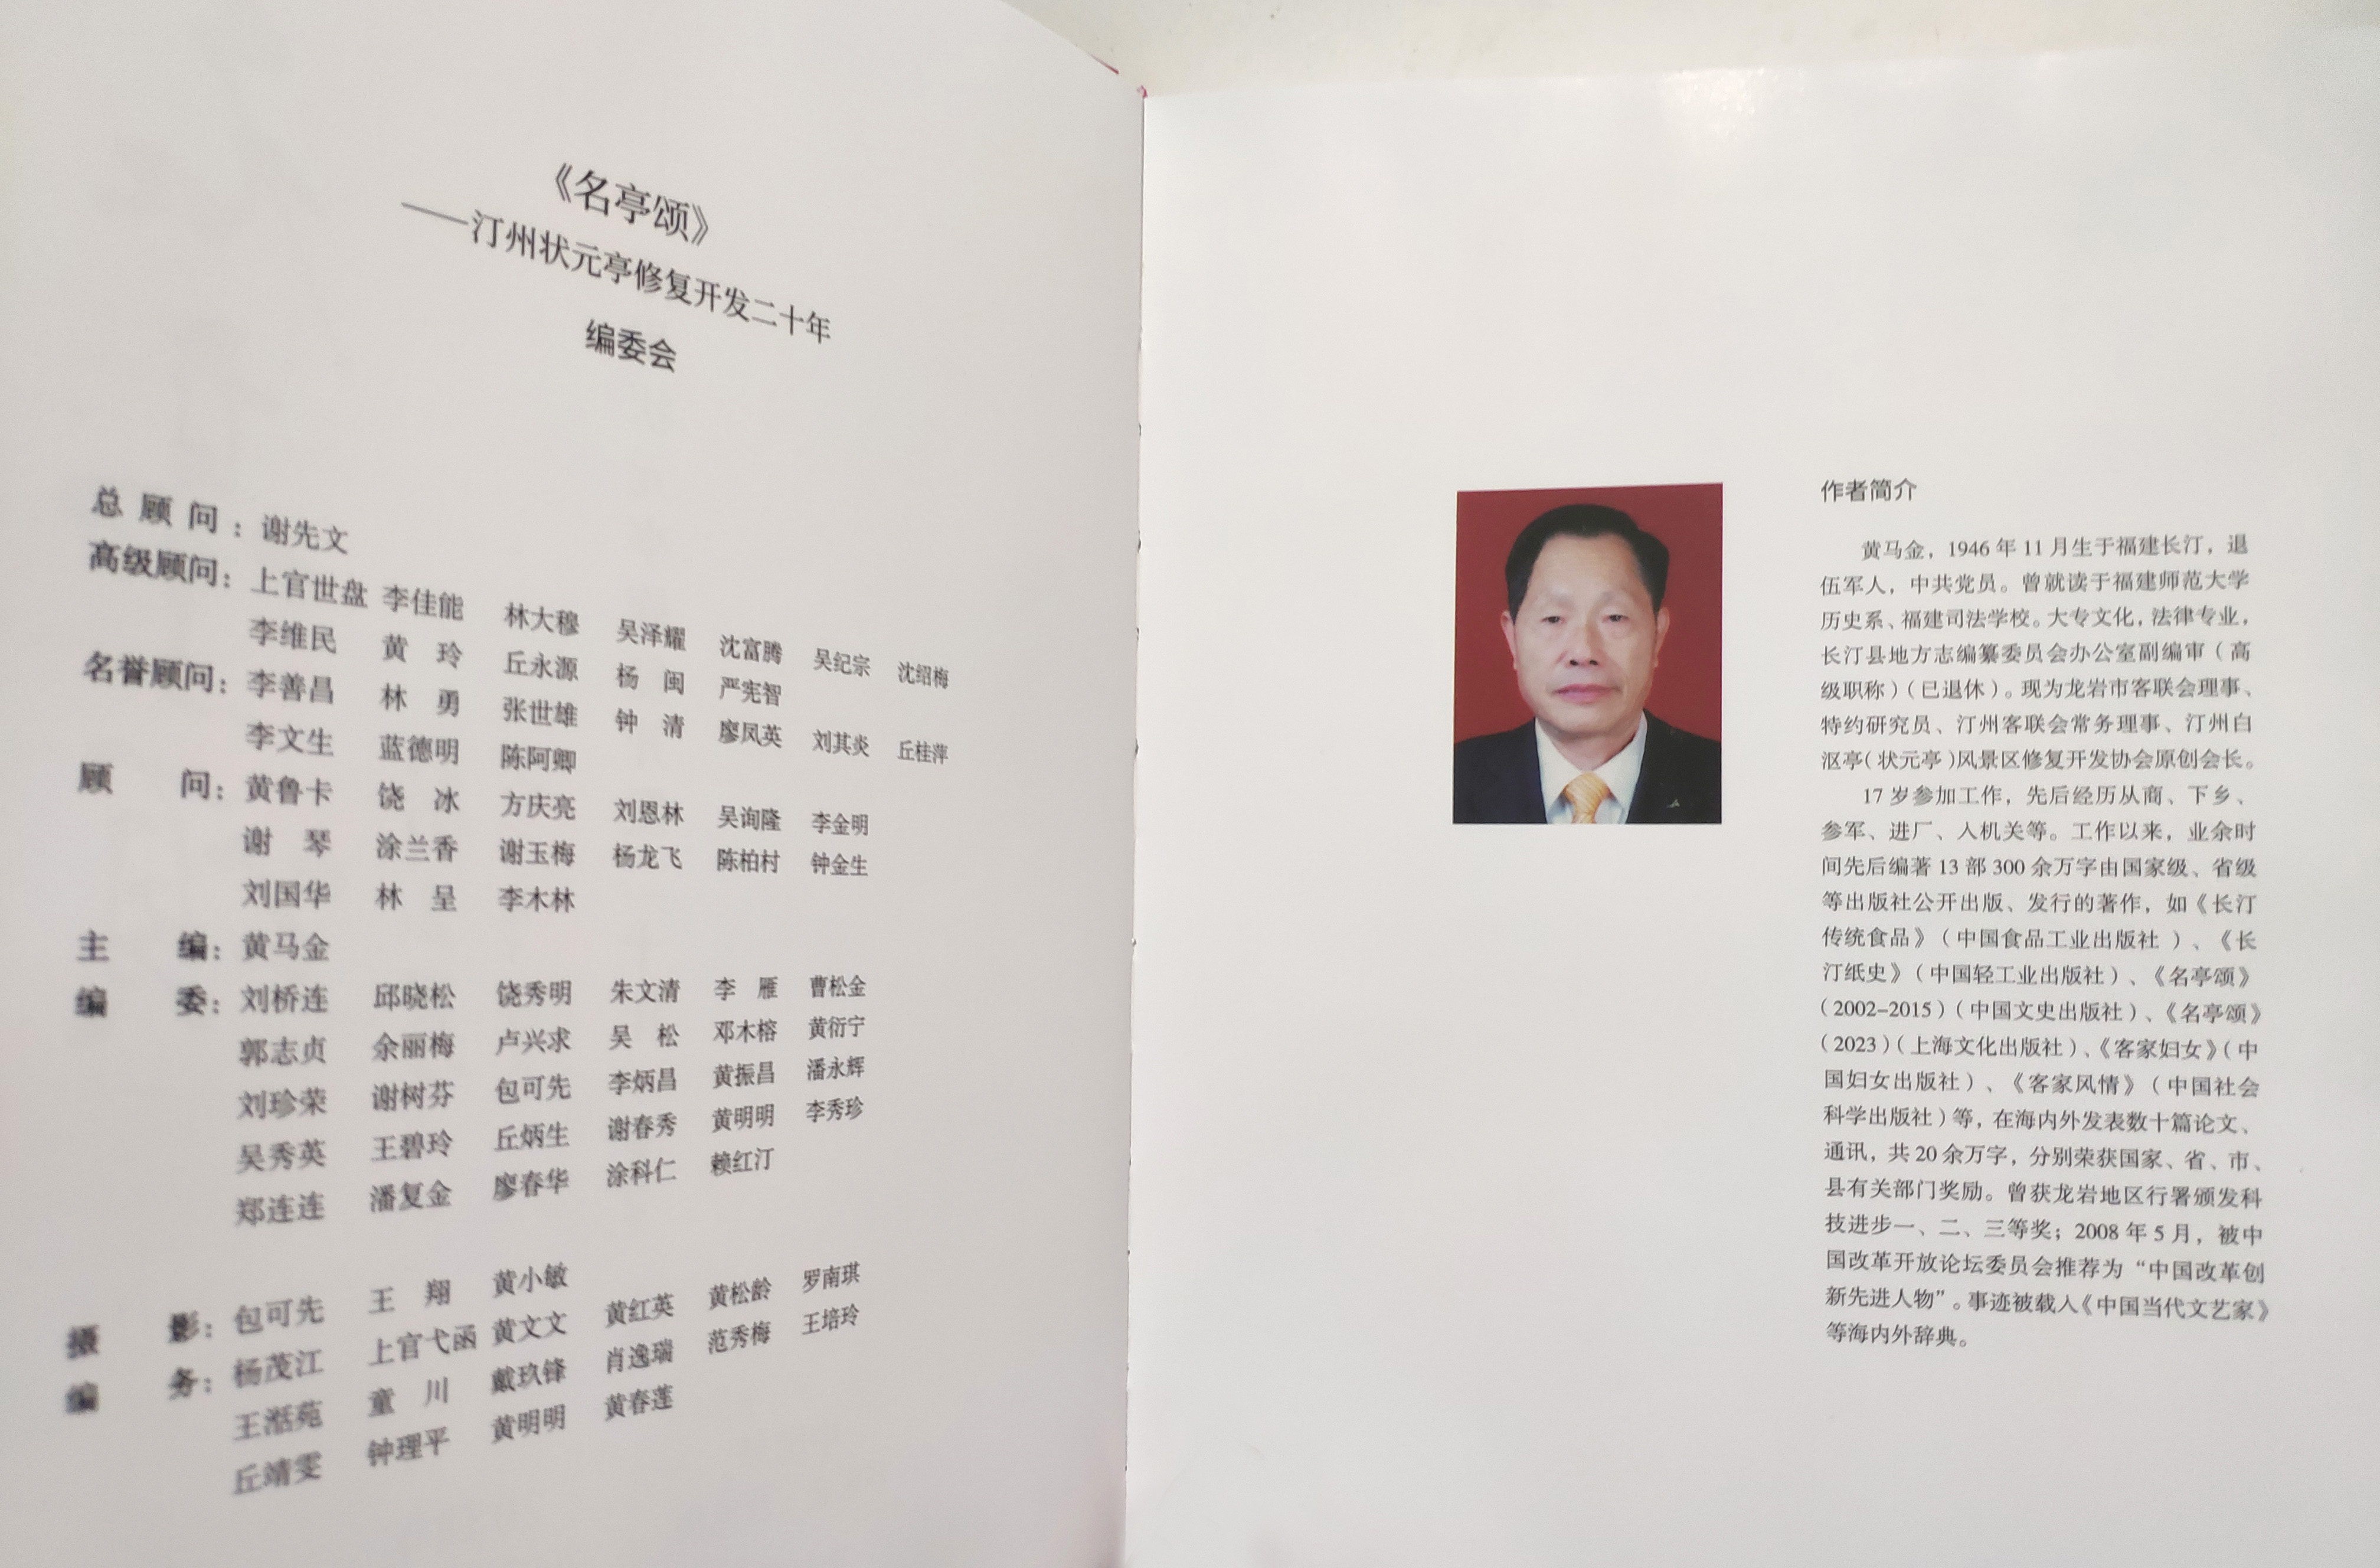 《名亭颂》
——汀州状元亭修复开发二十年
编委会
总 顾 问：谢先文
高级顾问：上官世盘 李佳能 林大穆 吴泽耀 沈富腾 吴纪宗 沈绍梅
李维民 黄 玲 丘永源 杨 闽 严宪智
名誉顾问：李善昌 林 勇 张世雄 钟 清 廖凤英 刘其炎 丘桂萍
李文生 蓝德明 陈阿卿
顾 问：黄鲁卡 饶 冰 方庆亮 刘恩林 吴询隆 李金明
谢 琴 涂兰香 谢玉梅 杨龙飞 陈柏村 钟金生
刘国华 林 呈 李木林
主 编：黄马金
编 委：刘桥连 邱晓松 饶秀明 朱文清 李 雁 曹松金
郭志贞 余丽梅 卢兴求 吴 松 邓木榕 黄衍宁
刘珍荣 谢树芬 包可先 李炳昌 黄振昌 潘永辉
吴秀英 王碧玲 丘炳生 谢春秀 黄明明 李秀珍
郑连连 潘复金 廖春华 涂科仁 赖红汀
摄 影：包可先 王 翔 黄小敏
编 务：杨茂江 上官弋函 黄文文 黄红英 黄松龄 罗南琪
王湉苑 童 川 戴玖锋 肖逸瑞 范秀梅 王培玲
丘靖雯 钟理平 黄明明 黄春莲
作者简介
黄马金，1946 年 11 月生于福建长汀，退
伍军人，中共党员。曾就读于福建师范大学
历史系、福建司法学校。大专文化，法律专业，
长汀县地方志编纂委员会办公室副编审（高
级职称）（已退休）。现为龙岩市客联会理事、
特约研究员、汀州客联会常务理事、汀州白
沤亭（状元亭）风景区修复开发协会原创会长。
17 岁参加工作，先后经历从商、下乡、
参军、进厂、入机关等。工作以来，业余时
间先后编著 13 部 300 余万字由国家级、省级
等出版社公开出版、发行的著作，如《长汀
传统食品》（中国食品工业出版社 ）、《长
汀纸史》（中国轻工业出版社）、《名亭颂》
（2002-2015）（中国文史出版社）、《名亭颂》
（2023）（上海文化出版社）、《客家妇女》（中
国妇女出版社）、《客家风情》（中国社会
科学出版社）等，在海内外发表数十篇论文、
通讯，共 20 余万字，分别荣获国家、省、市、
县有关部门奖励。曾获龙岩地区行署颁发科
技进步一、二、三等奖；2008 年 5 月，被中
国改革开放论坛委员会推荐为“中国改革创
新先进人物”。事迹被载入《中国当代文艺家》
等海内外辞典。